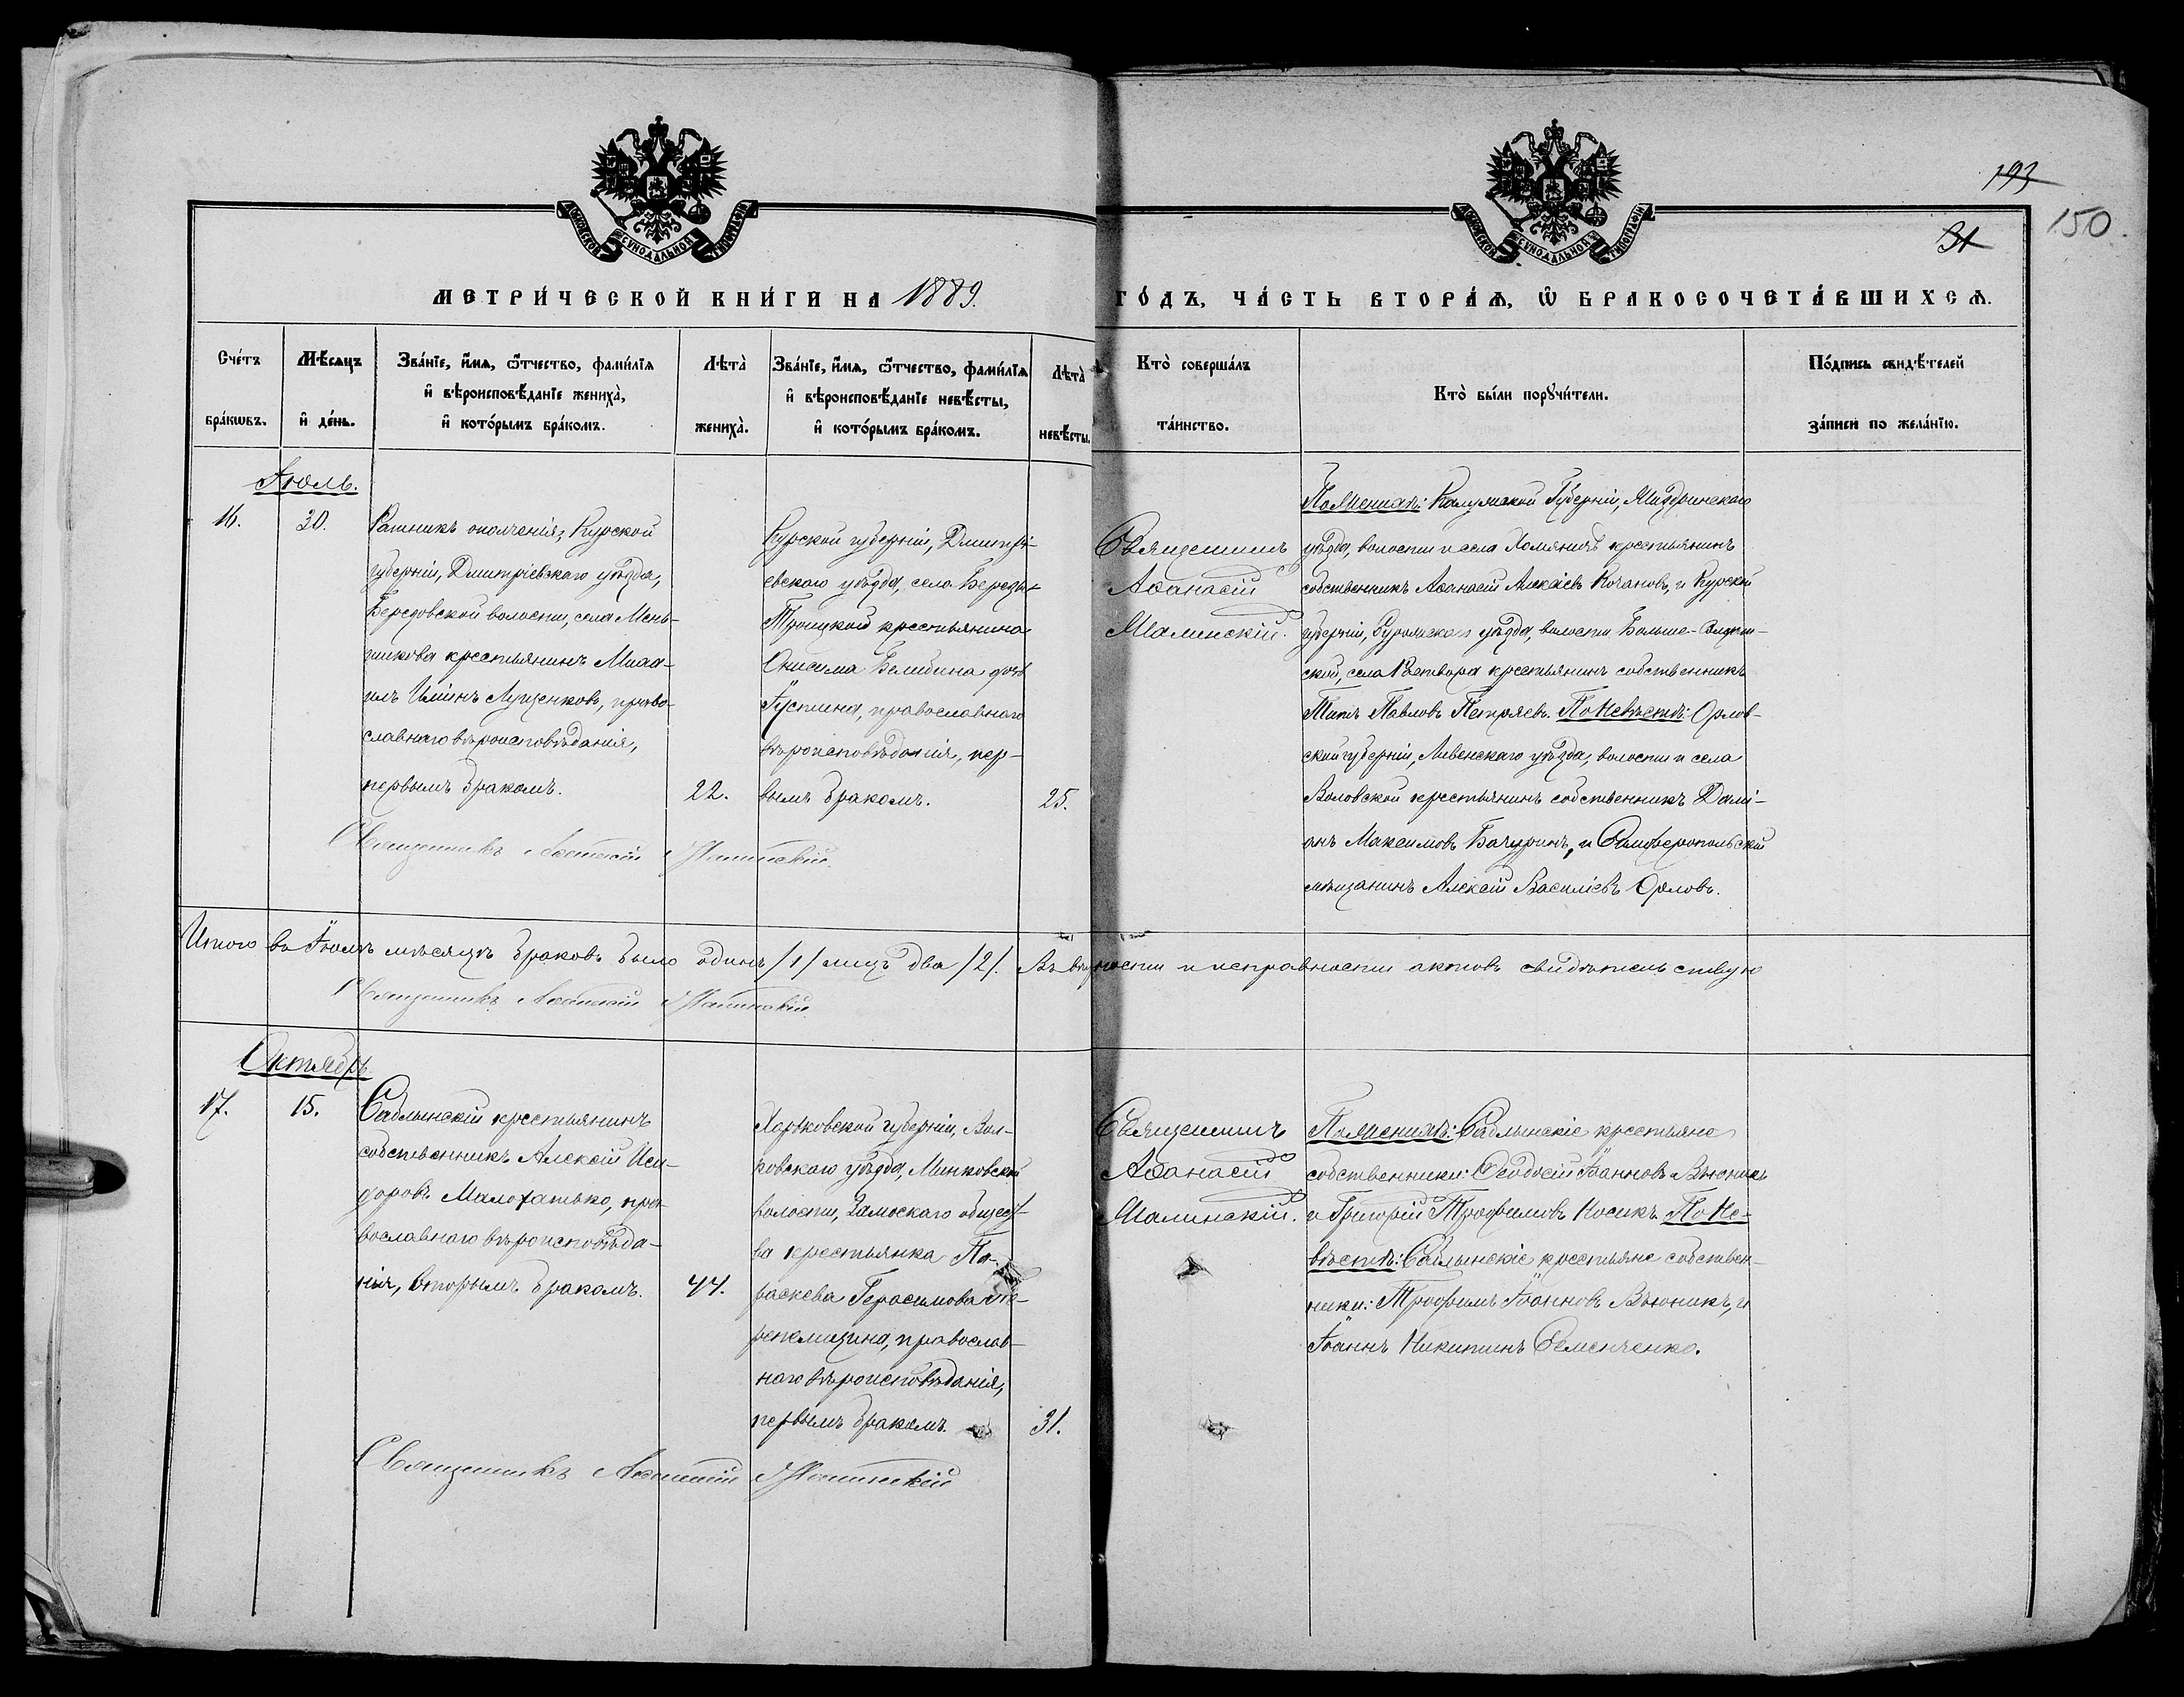 193
150
31
МОСКОВСКОЙ СѴНОДАЛЬНОЙ ТИПОГРАФІИ
МОСКОВСКОЙ СѴНОДАЛЬНОЙ ТИПОГРАФІИ
МЕТРИ́ЧЕСКОЙ КНИ́ГИ НА 1889.
ГО́ДЪ, ЧА́СТЬ ВТОРА́Ѧ, Ѽ БРАКОСОЧЕТА́ВШИХСѦ.
Сче́тъ бра́кѡвъ.
Мѣ́сяцъ и҆ де́нь.
Зва́нїе, и҆́мѧ, ѻ҆́тчество, фами́лїѧ
и҆ вѣроисповѣ́данїе жениха̀,
и҆ кото́рымъ бра́комъ.
Лѣта̀ жениха̀.
Зва́нїе, и҆́мѧ, ѻ҆́тчество, фами́лїѧ
и҆ вѣроисповѣ́данїе невѣ́сты,
и҆ кото́рымъ бра́комъ.
Лѣта̀ невѣ́сты.
Кто̀ соверша́лъ
та́инство.
Кто̀ бы́ли порꙋчи́тели.
По́дпись свидѣ́телей
за́писи по жела́нїю.
Іюль.
16.
30.
Ратникъ ополченія, Курской
губерніи, Дмитріевскаго уѣзда,
Береговской волости, села Мень-
шикова крестьянинъ Миха-
илъ Ильинъ Лущенковъ, право-
славнаго вѣроисповѣданія,
первымъ бракомъ.
22.
Курской губерніи, Дмитрі-
евскаго уѣзда, села
Троицкой крестьянина
Онисима Белибина дочь
Іустина, православнаго
вѣроисповѣданія, пер-
вымъ бракомъ.
25.
Священникъ
Аѳанасій
Малинскій.
По Женихѣ: Калужской Губерніи, Жиздринскаго
уѣзда, волости и села крестьянинъ
собственникъ Аѳанасій Алексіевъ Кочановъ, и Курской
губерніи, уѣзда, волости Больше-
ской, села крестьянинъ собственникъ
Титъ Павловъ Петряевъ. По Невѣстѣ: Орлов-
ской губерніи, Ливенскаго уѣзда, волости и села
Воловской крестьянинъ собственникъ Дамі-
анъ Максимовъ Бачуринъ, и Симферопольскій
мѣщанинъ Алексій Василіевъ Орловъ.
Священникъ Аѳанасій Малинскій.
Итого въ Іюлѣ мѣсяцѣ браковъ было одинъ /1/ лицъ два /2/. Въ вѣрности и исправности актовъ свидѣтельствую
Священникъ Аѳанасій Малинскій
Октябрь.
17.
15.
Саблынскій крестьянинъ
собственникъ Алексій Иси-
доровъ Малохатько, пра-
вославнаго вѣроисповѣда-
нія, вторымъ бракомъ.
44.
Харьковской губерніи, Вал-
ковскаго уѣзда, Минковской
волости, Замоскаго общест-
ва крестьянка Па-
раскева Герасимова Пе-
репелицина, православ-
наго вѣроисповѣданія,
первымъ бракомъ.
31.
Священникъ
Аѳанасій
Малинскій.
По Женихѣ: Саблынскіе крестьяне
собственники: Ѳеодосій Іоанновъ Вьюникъ
и Григорій Трофимовъ Носикъ. По Не-
вѣстѣ: Саблынскіе крестьяне собствен-
ники: Трофимъ Іоанновъ Вьюникъ, и
Іоаннъ Никитинъ Семенченко.
Священникъ Аѳанасій Малинскій